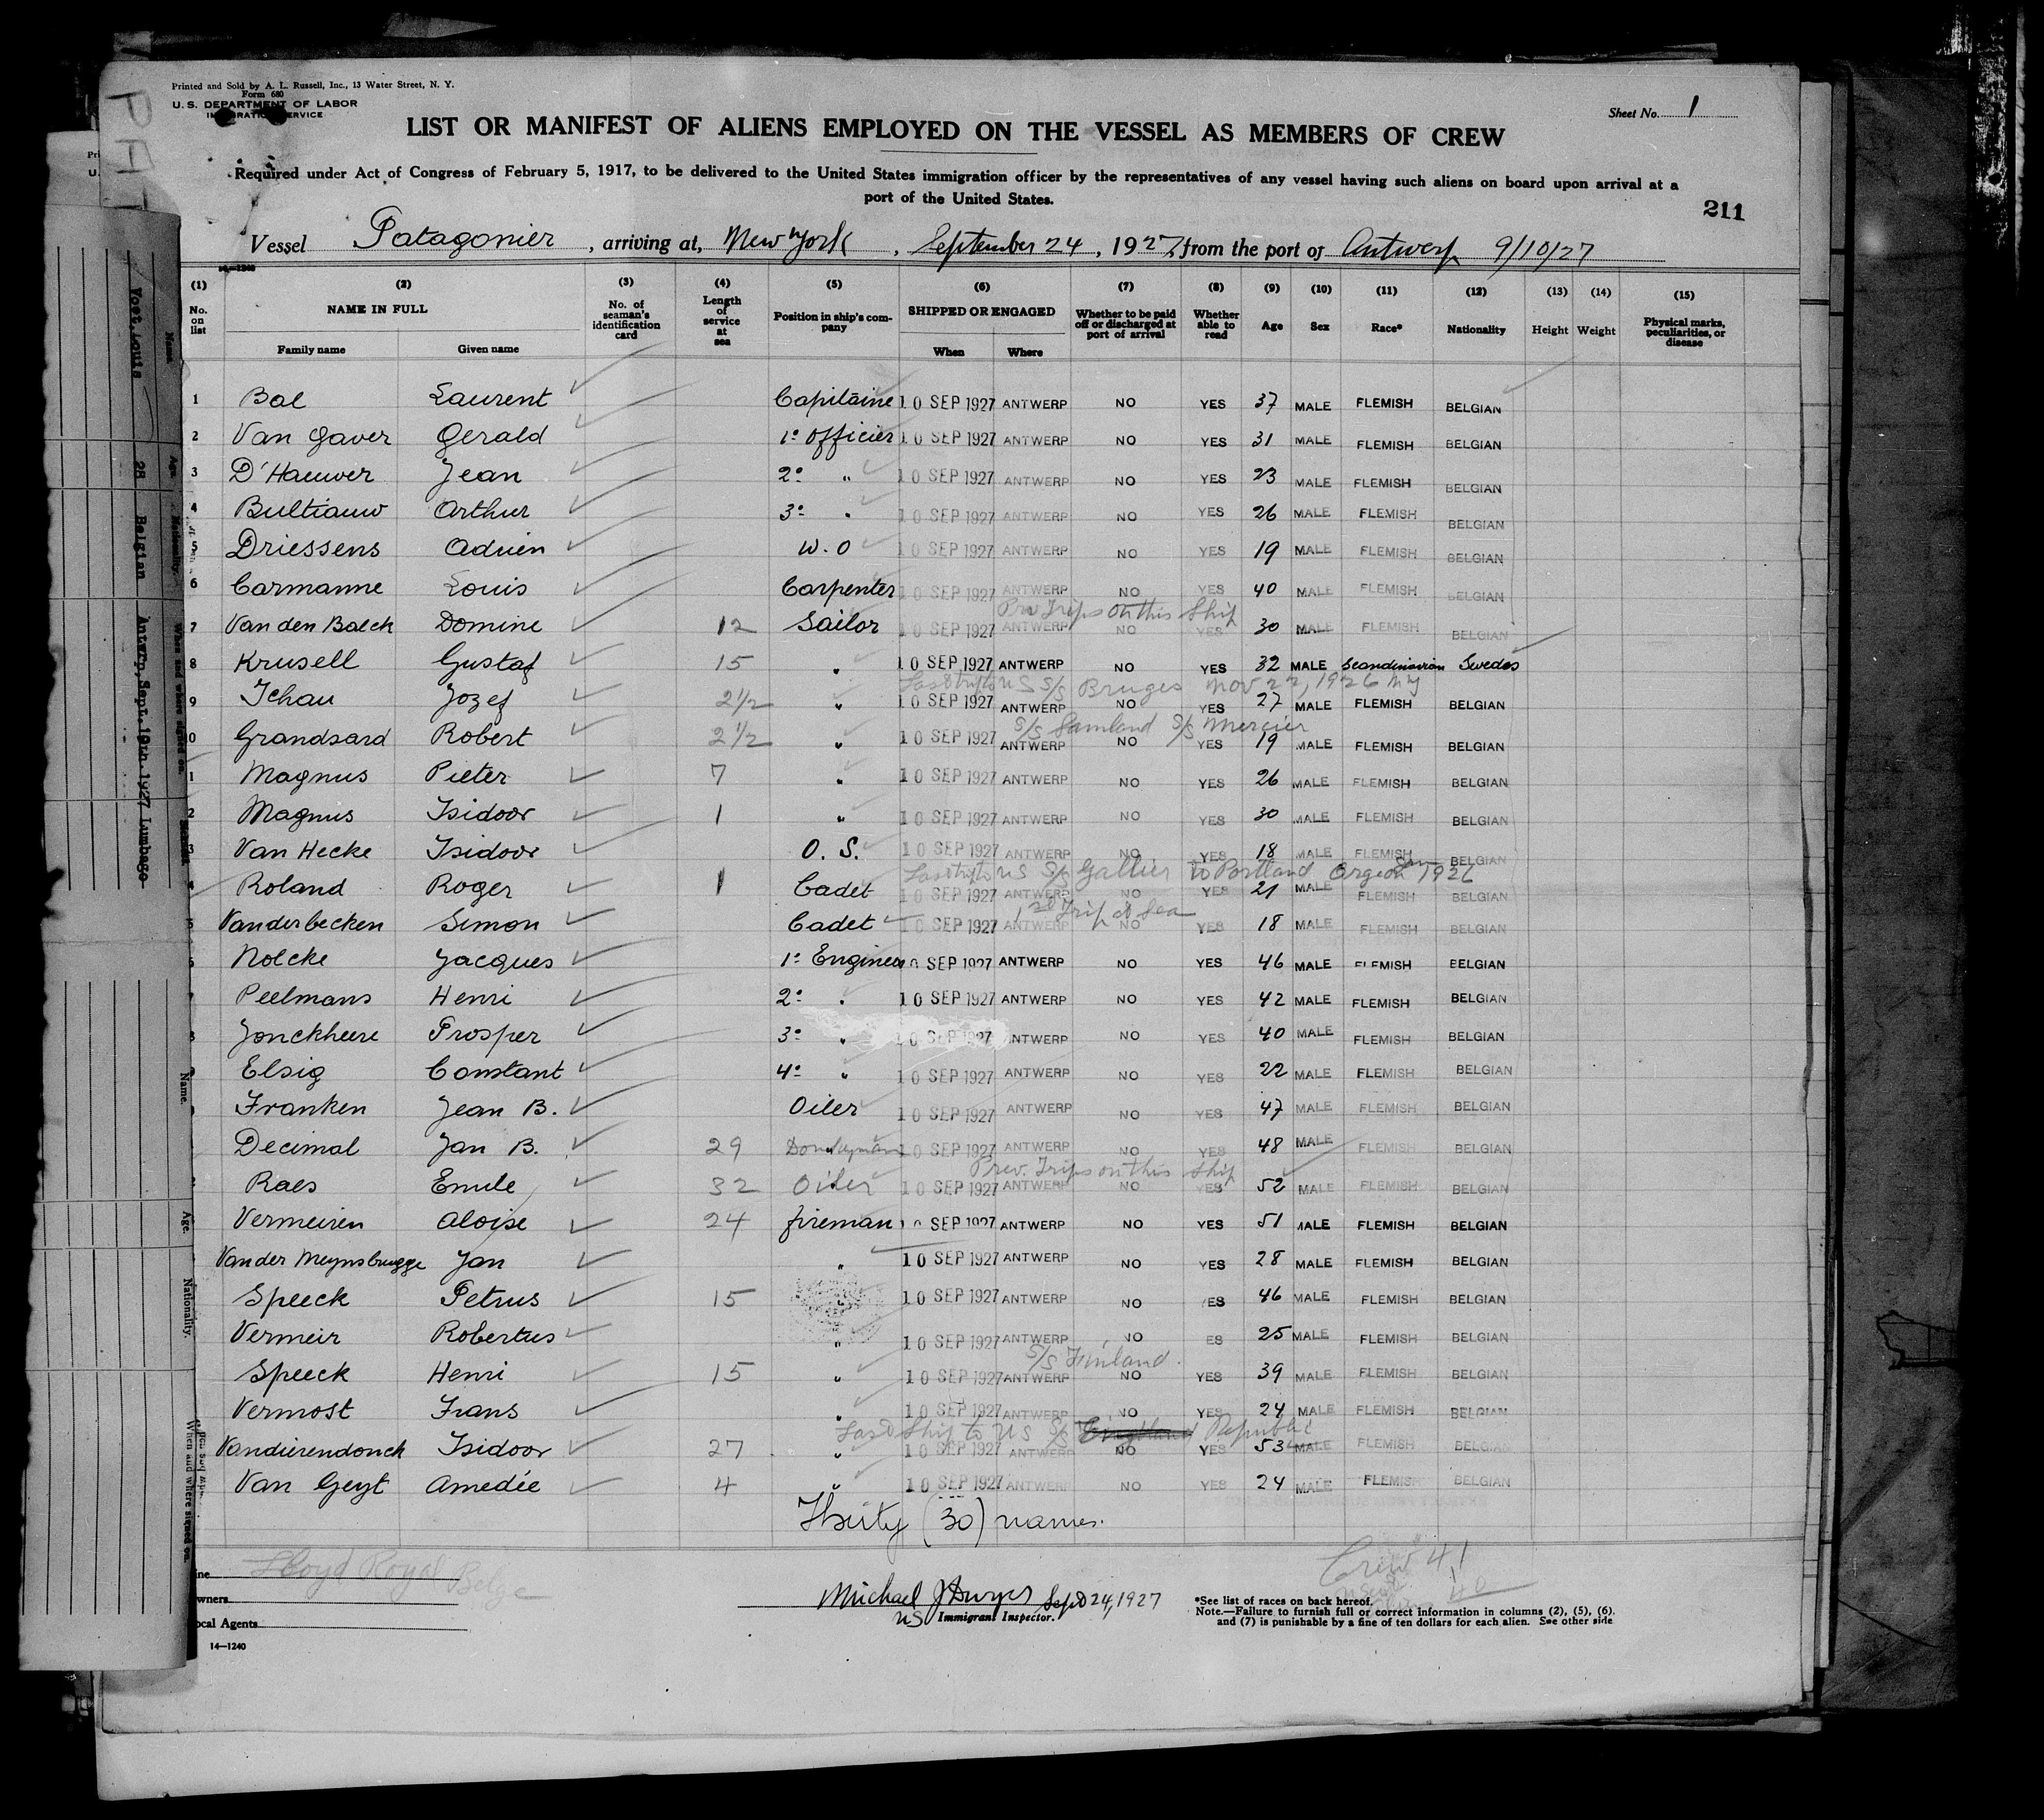 Printed and Sold by A. L. Russell, Inc., 13 Water Street, N. Y.
Form 680
U. S. DEPARTMENT OF LABOR
IMMIGRATION SERVICE
Sheet No. 1
LIST OR MANIFEST OF ALIENS EMPLOYED ON THE VESSEL AS MEMBERS OF CREW
Required under Act of Congress of February 5, 1917, to be delivered to the United States immigration officer by the representatives of any vessel having such aliens on board upon arrival at a
port of the United States.
211
Vessel Patagonier, arriving at, New York, September 24, 1927, from the port of Antwerp 9/10/27
14—1240
(1) No. on list (2) NAME IN FULL Family name Given name (3) No. of seaman's identification card (4) Length of service at sea (5) Position in ship's company (6) SHIPPED OR ENGAGED When Where (7) Whether to be paid off or discharged at port of arrival (8) Whether able to read (9) Age (10) Sex (11) Race* (12) Nationality (13) Height (14) Weight (15) Physical marks, peculiarities, or disease
1 Bal Laurent Capitaine 10 SEP 1927 ANTWERP NO YES 37 MALE FLEMISH BELGIAN
2 Van Gaver Gerald 1º Officier 10 SEP 1927 ANTWERP NO YES 31 MALE FLEMISH BELGIAN
3 D'Hauwer Jean 2º " 10 SEP 1927 ANTWERP NO YES 23 MALE FLEMISH BELGIAN
4 Bultiauw Arthur 3º " 10 SEP 1927 ANTWERP NO YES 26 MALE FLEMISH BELGIAN
5 Driessens Adrien W. O 10 SEP 1927 ANTWERP NO YES 19 MALE FLEMISH BELGIAN
6 Carmanne Louis Carpenter 10 SEP 1927 ANTWERP NO YES 40 MALE FLEMISH BELGIAN
Prev Trips on this Ship
7 Van den Balck Domine 12 Sailor 10 SEP 1927 ANTWERP NO YES 30 MALE FLEMISH BELGIAN
8 Krusell Gustaf 15 " 10 SEP 1927 ANTWERP NO YES 32 MALE Scandinavian Swedes
Last trip to US S/S Bruges Nov 22, 1926 NY
9 Ichau Jozef 2 1/2 " 10 SEP 1927 ANTWERP NO YES 27 MALE FLEMISH BELGIAN
S/S Samland S/S Mercier
10 Grandsard Robert 2 1/2 " 10 SEP 1927 ANTWERP NO YES 19 MALE FLEMISH BELGIAN
1 Magnus Pieter 7 " 10 SEP 1927 ANTWERP NO YES 26 MALE FLEMISH BELGIAN
2 Magnus Isidoor 1 " 10 SEP 1927 ANTWERP NO YES 30 MALE FLEMISH BELGIAN
3 Van Hecke Isidoor O. S. 10 SEP 1927 ANTWERP NO YES 18 MALE FLEMISH BELGIAN
Last trip to US S/S Gallier to Portland Oregon 1926
4 Roland Roger 1 Cadet 10 SEP 1927 ANTWERP NO YES 21 MALE FLEMISH BELGIAN
1st Trip at Sea
5 Vanderbecken Simon Cadet 10 SEP 1927 ANTWERP NO YES 18 MALE FLEMISH BELGIAN
6 Nolcke Jacques 1º Engineer 10 SEP 1927 ANTWERP NO YES 46 MALE FLEMISH BELGIAN
7 Peelmans Henri 2º " 10 SEP 1927 ANTWERP NO YES 42 MALE FLEMISH BELGIAN
8 Jonckheere Prosper 3º " 10 SEP 1927 ANTWERP NO YES 40 MALE FLEMISH BELGIAN
Elsig Constant 4º " 10 SEP 1927 ANTWERP NO YES 22 MALE FLEMISH BELGIAN
Franken Jean B. Oiler 10 SEP 1927 ANTWERP NO YES 47 MALE FLEMISH BELGIAN
Decimal Jan B. 29 Donkeyman 10 SEP 1927 ANTWERP NO YES 48 MALE FLEMISH BELGIAN
Prev. Trips on this Ship
Raes Emile 32 Oiler 10 SEP 1927 ANTWERP NO YES 52 MALE FLEMISH BELGIAN
Vermeiren Aloise 24 fireman 10 SEP 1927 ANTWERP NO YES 51 MALE FLEMISH BELGIAN
Van der Meynsbrugge Jan " 10 SEP 1927 ANTWERP NO YES 28 MALE FLEMISH BELGIAN
Speeck Petrus 15 " 10 SEP 1927 ANTWERP NO YES 46 MALE FLEMISH BELGIAN
Vermeir Robertus " 10 SEP 1927 ANTWERP NO YES 25 MALE FLEMISH BELGIAN
S/S Finland.
Speeck Henri 15 " 10 SEP 1927 ANTWERP NO YES 39 MALE FLEMISH BELGIAN
Vermost Frans " 10 SEP 1927 ANTWERP NO YES 24 MALE FLEMISH BELGIAN
Last Ship to US S/S Republic
Vandierendonck Isidoor 27 " 10 SEP 1927 ANTWERP NO YES 53 MALE FLEMISH BELGIAN
Van Geyt Amedée 4 " 10 SEP 1927 ANTWERP NO YES 24 MALE FLEMISH BELGIAN
Thirty (30) names.
Line Lloyd Royal Belge
Owners
Local Agents
14—1240
Michael J Dwyer Sept 24, 1927
US Immigrant Inspector.
Crew 41
40
*See list of races on back hereof.
Note.—Failure to furnish full or correct information in columns (2), (5), (6), and (7) is punishable by a fine of ten dollars for each alien. See other side
Name Age. Nationality. When and where signed on.
Voet, Louis 28 Belgian Antwrp, Sept. 10th. 1927 Lumbago
Name. Age. Nationality. When and where signed on.